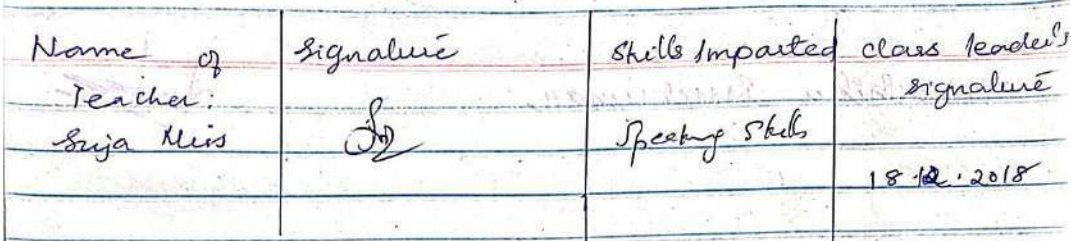 Name of Signature Skills Imparted class leader's
Teacher: signature
Srija Miss Speaking Skills
18.12.2018